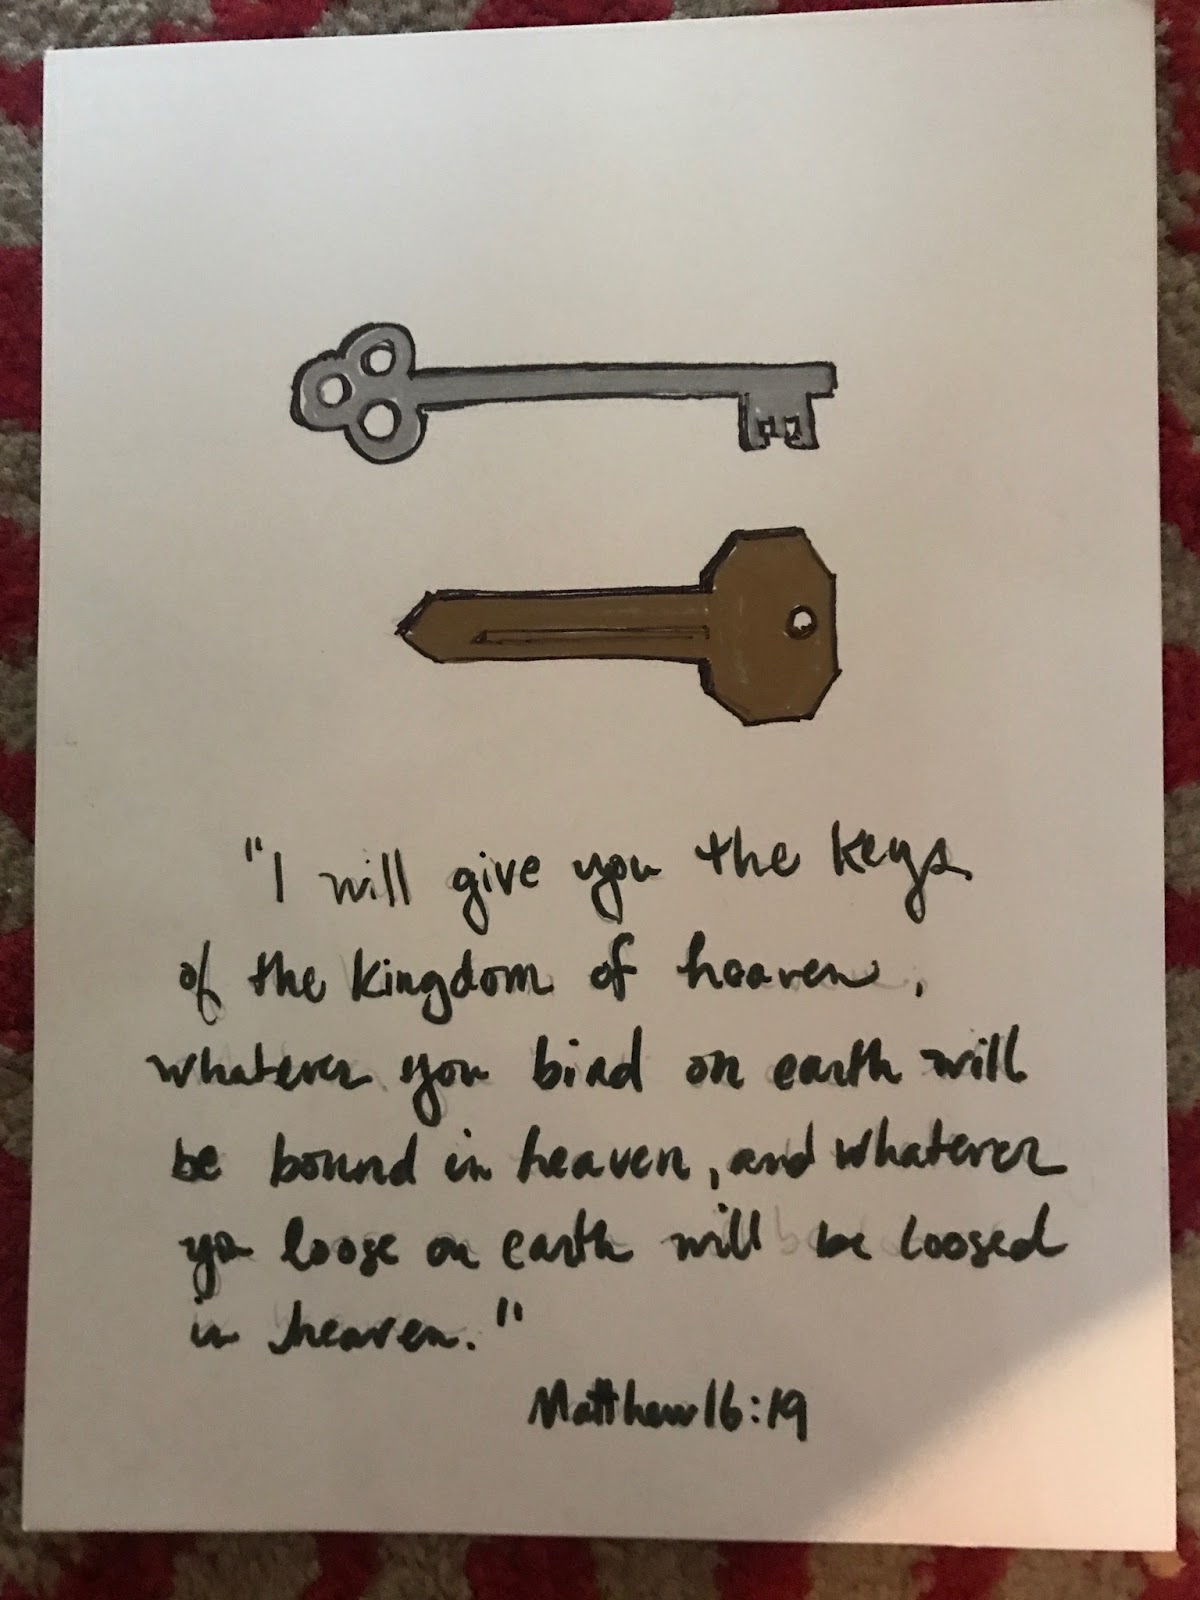 "I will give you the keys
of the kingdom of heaven,
whatever you bind on earth will
be bound in heaven, and whatever
you loose on earth will be loosed
in heaven."
Matthew 16:19